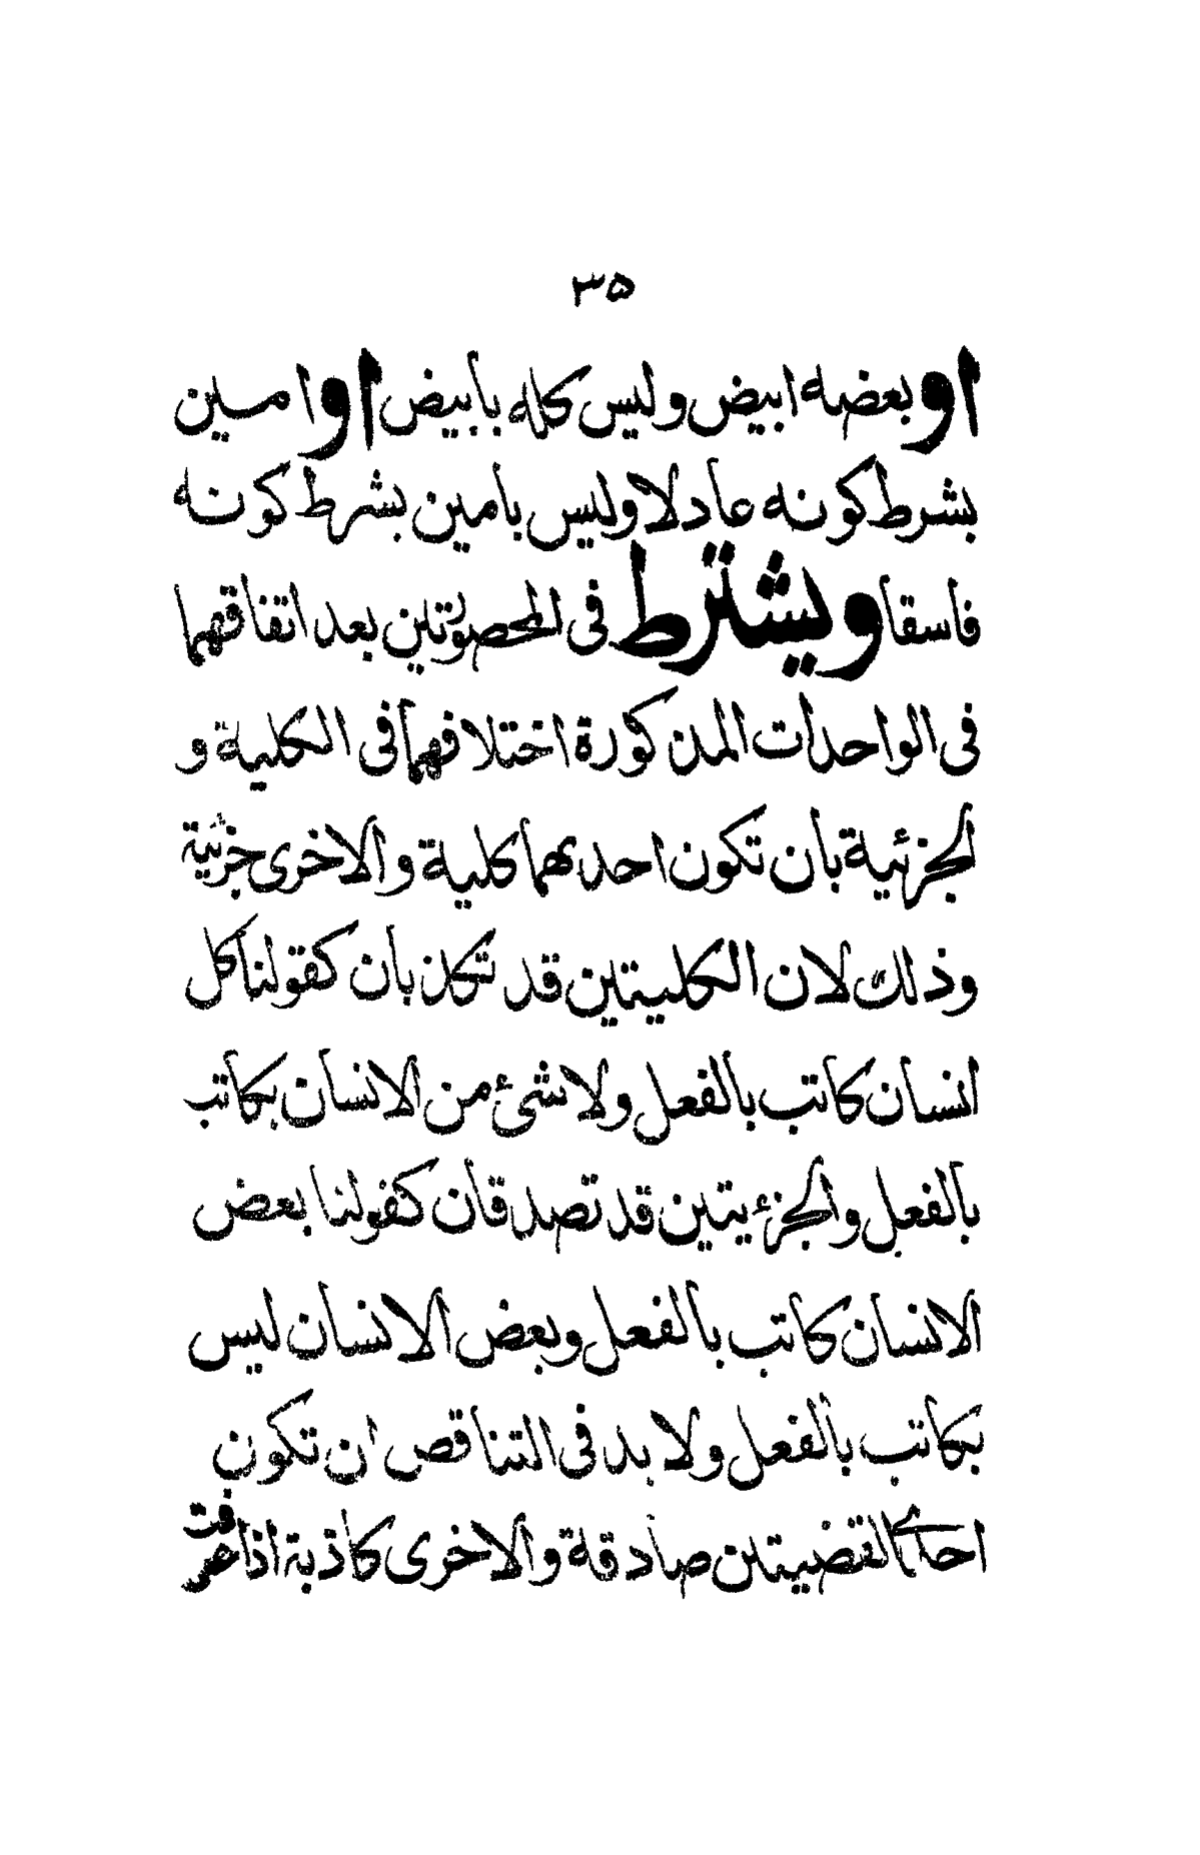 ۳۵
او بعضه ابيض وليس كله بابيض او امين
بشرط كونه عادلا وليس بامين بشرط كونه
فاسقا ويشترط فى المحصورتين بعد اتفاقهما
فى الواحدات المذكورة اختلافهما فى الكلية و
الجزئية بان تكون احدىهما كلية والاخرى جزئية
وذلك لان الكليتين قد تكذبان كقولنا كل
انسان كاتب بالفعل ولا شئ من الانسان بكاتب
بالفعل والجزءيتين قد تصدقان كقولنا بعض
الانسان كاتب بالفعل وبعض الانسان ليس
بكاتب بالفعل ولا بد فى التناقص ان تكون
احدى القضيتين صادقة والاخرى كاذبة اذا عرفت